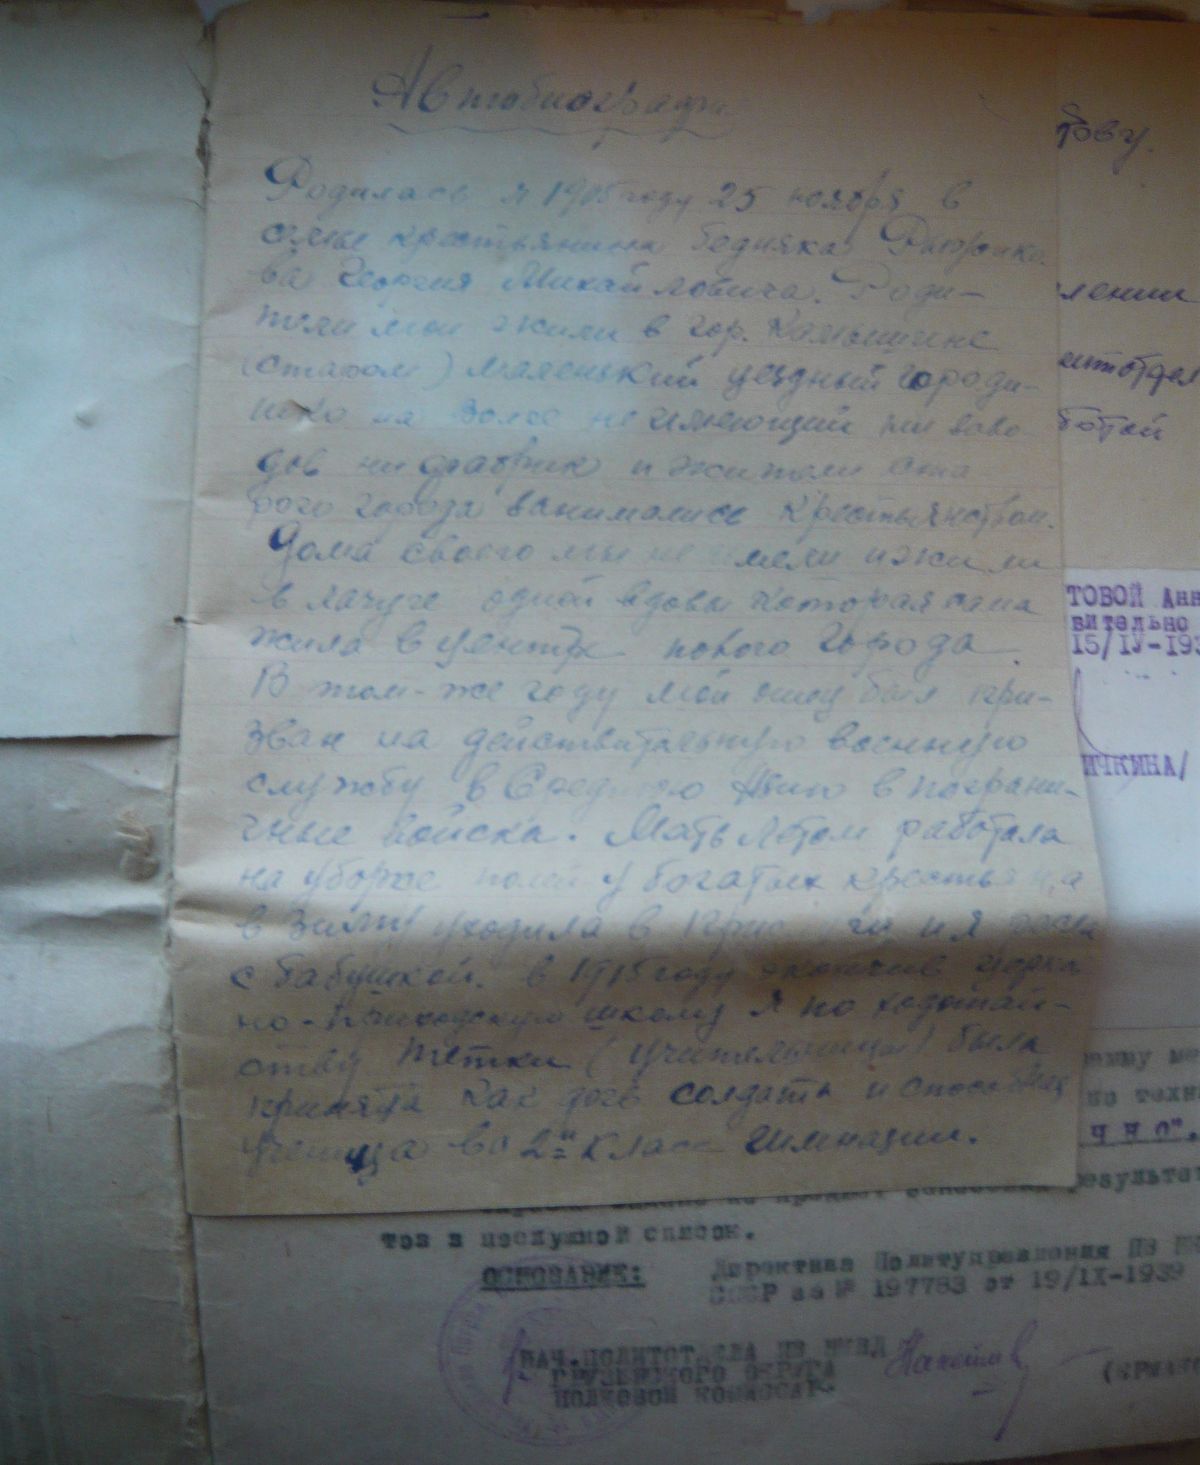 Автобиография
Родилась я 1905 году 25 ноября в
семье крестьянина бедняка
ва Георгия Михайловича. Роди-
тели мои жили в гор. Камышине
(старом) маленький уездный городи-
шко на Волге не имеющий ни заво-
дов ни фабрик и жители ста-
рого города занимались крестьянством.
Дома своего мы не имели и жили
в лачуге одной вдовы которая сама
жила в центре нового города.
В том-же году мой отец был при-
зван на действительную военную
службу в Среднюю Азию в погранич-
чные войска. Мать летом работала
на уборке полей у богатых крестьян, а
в зиму уходила в прислуги и я росла
с бабушкой. в 1915 году окончив церков
но-приходскую школу я по ходатай-
ству тетки (учительницы) была
принята как дочь солдата и способная
ученица во 2й класс гимназии.
тову.
лении
литотдел
ботой
ТОВОЙ Анн
вительно
15/IV-193
ИЧКИНА/
результа
тов в послужной список.
ОСНОВАНИЕ: Директива Политуправления ПВ НК
СССР за № 197783 от 19/IX-1939
НАЧ.ПОЛИТОТДЕЛА ПВ НКВД
ГРУЗИНСКОГО ОКРУГА
ПОЛКОВОЙ КОМИССАР-